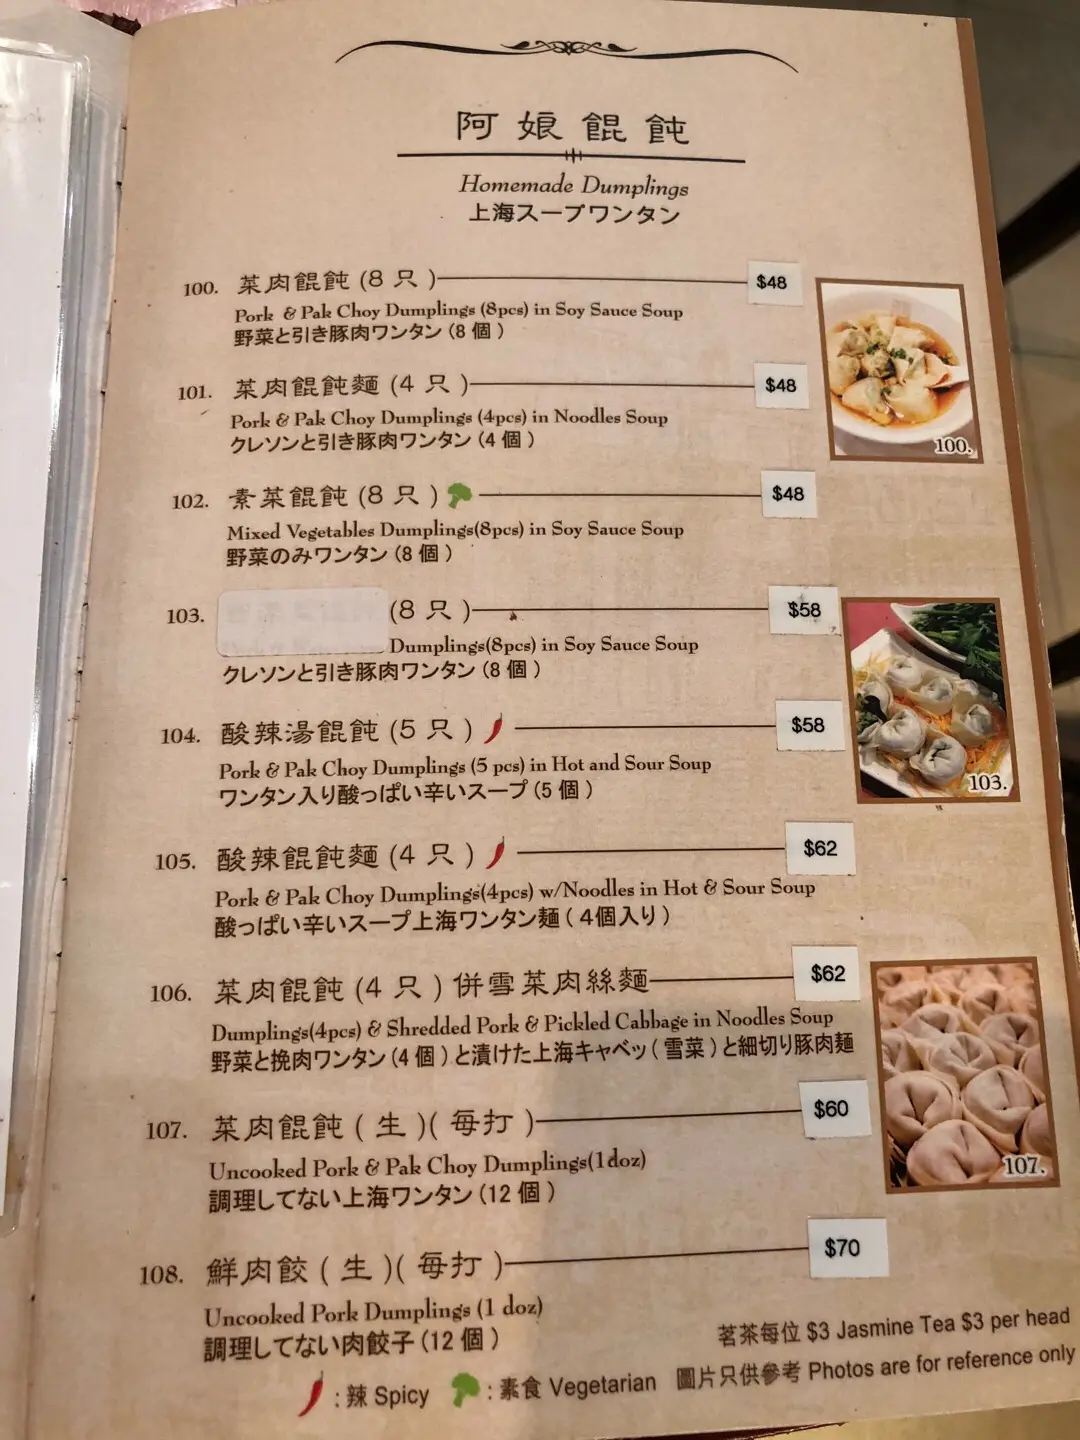 阿娘餛飩
Homemade Dumplings
上海スープワンタン
100. 菜肉餛飩 (8 只) $48
Pork & Pak Choy Dumplings (8pcs) in Soy Sauce Soup
野菜と引き豚肉ワンタン (8 個)
100.
101. 菜肉餛飩麵 (4 只) $48
Pork & Pak Choy Dumplings (4pcs) in Noodles Soup
クレソンと引き豚肉ワンタン (4 個)
102. 素菜餛飩 (8 只) $48
Mixed Vegetables Dumplings(8pcs) in Soy Sauce Soup
野菜のみワンタン (8 個)
103. (8 只) $58
Dumplings(8pcs) in Soy Sauce Soup
クレソンと引き豚肉ワンタン (8 個)
103.
104. 酸辣湯餛飩 (5 只) $58
Pork & Pak Choy Dumplings (5 pcs) in Hot and Sour Soup
ワンタン入り酸っぱい辛いスープ (5 個)
105. 酸辣餛飩麵 (4 只) $62
Pork & Pak Choy Dumplings(4pcs) w/Noodles in Hot & Sour Soup
酸っぱい辛いスープ上海ワンタン麺 (4個入り)
106. 菜肉餛飩 (4 只) 併雪菜肉絲麵 $62
Dumplings(4pcs) & Shredded Pork & Pickled Cabbage in Noodles Soup
野菜と挽肉ワンタン (4 個) と漬けた上海キャベッ (雪菜) と細切り豚肉麺
107. 菜肉餛飩 (生)(每打) $60
Uncooked Pork & Pak Choy Dumplings(1doz)
調理してない上海ワンタン (12 個)
107.
108. 鮮肉餃 (生)(每打) $70
Uncooked Pork Dumplings (1 doz)
調理してない肉餃子 (12 個)
茗茶每位 $3 Jasmine Tea $3 per head
: 辣 Spicy : 素食 Vegetarian 圖片只供參考 Photos are for reference only